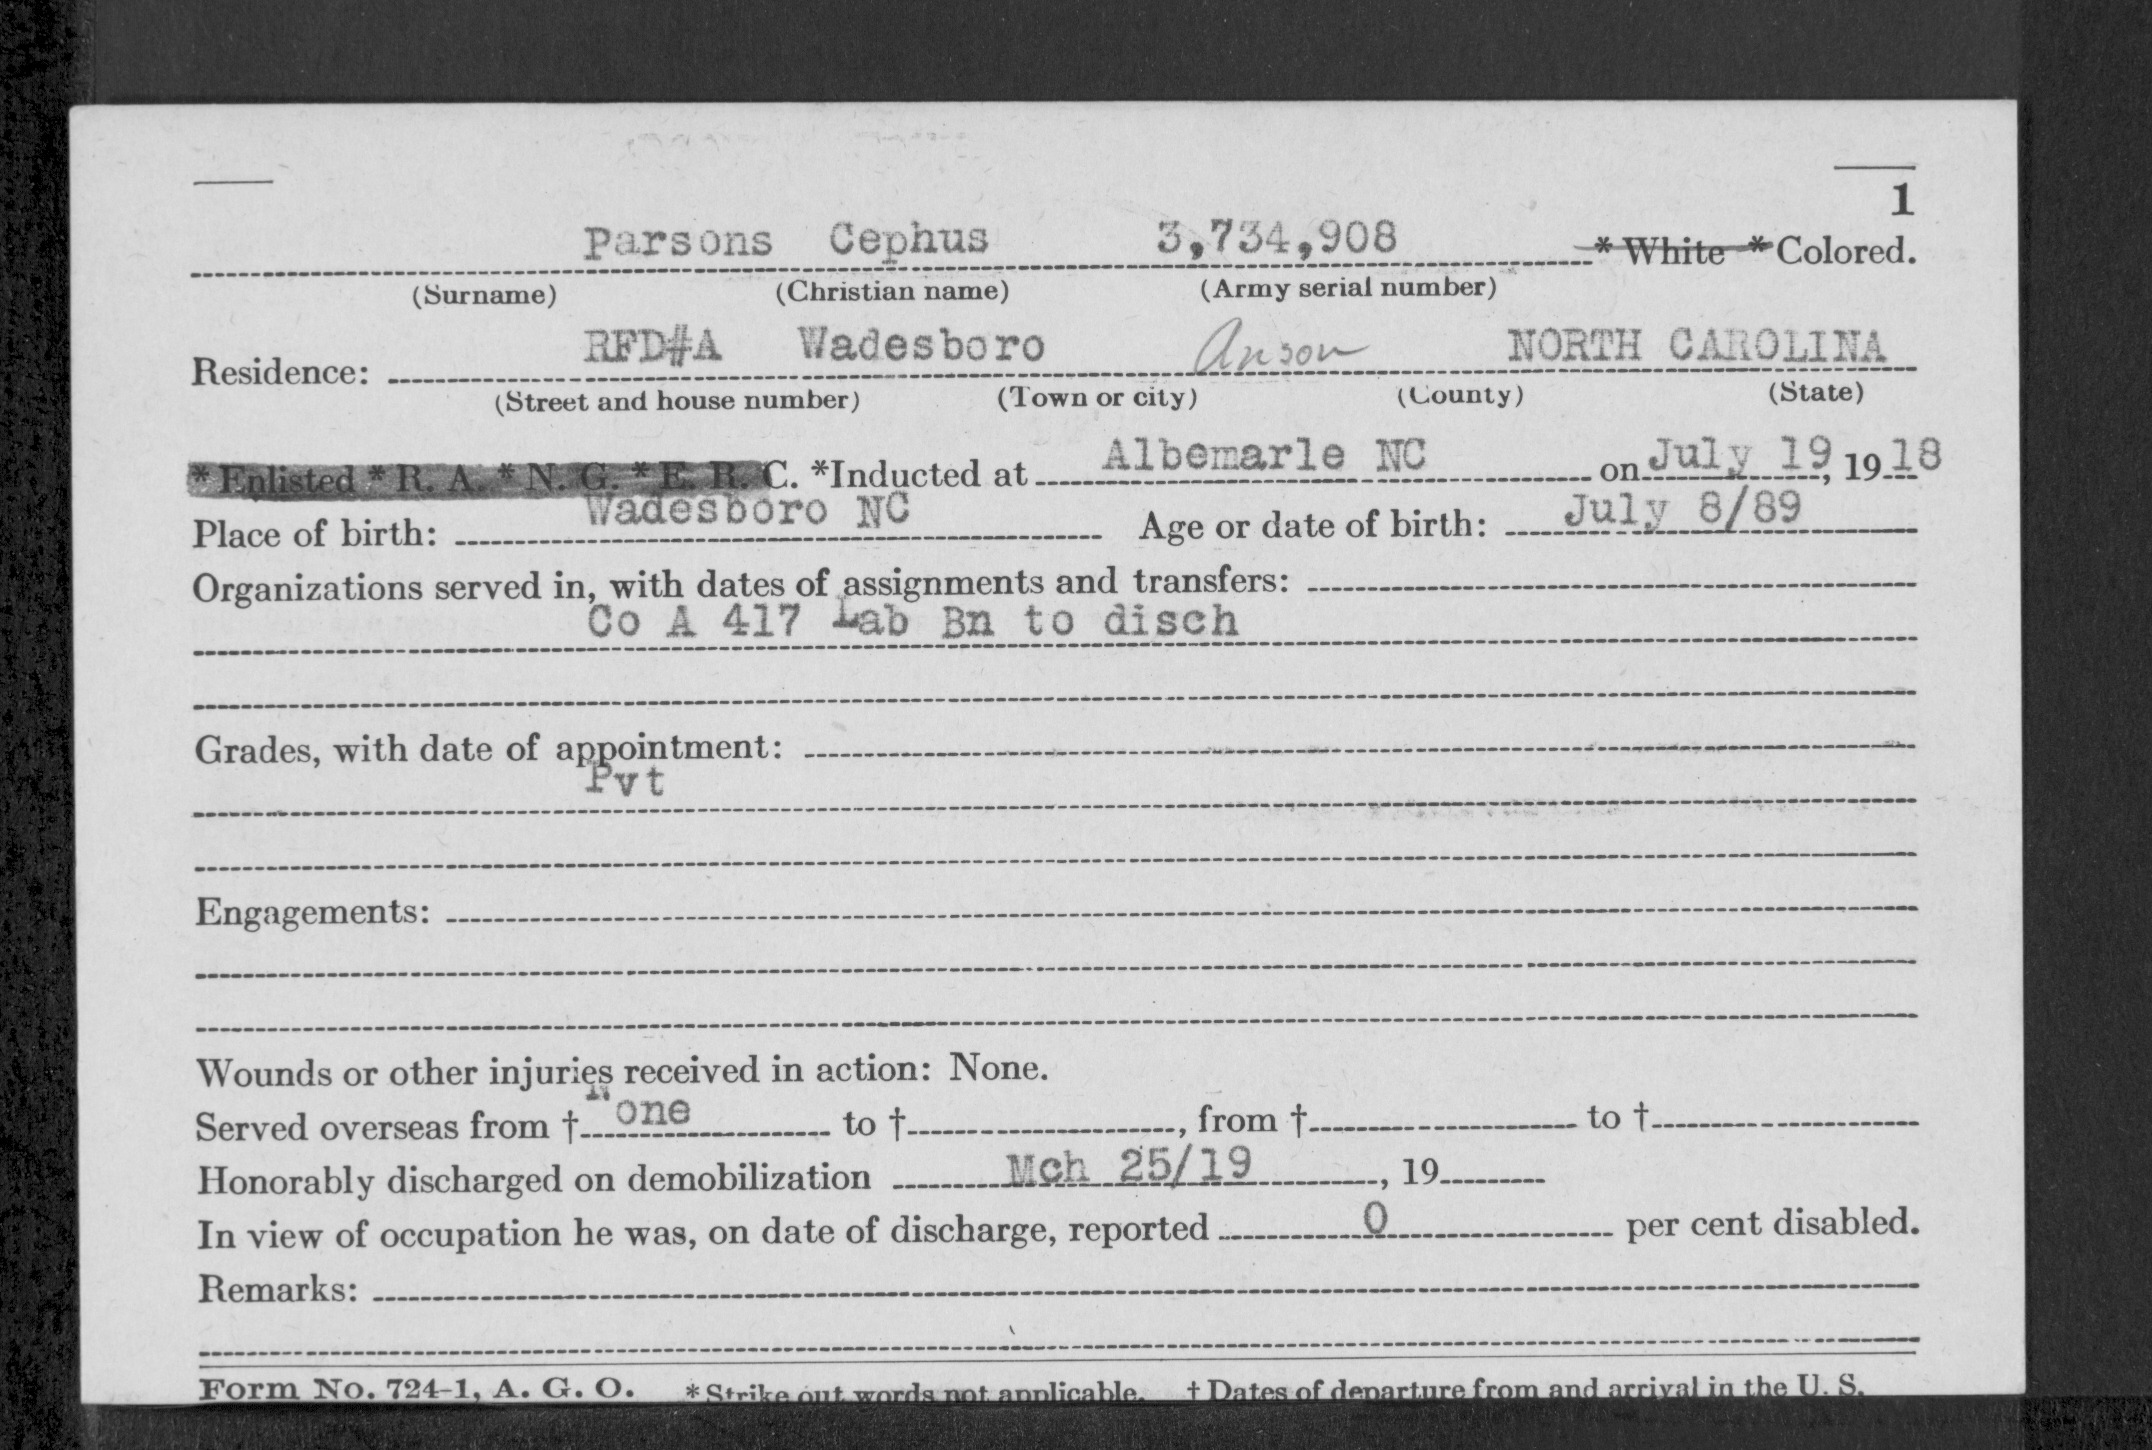 1
Parsons Cephus 3,734,908 * White * Colored.
(Surname) (Christian name) (Army serial number)
Residence: RFD#A Wadesboro Anson NORTH CAROLINA
(Street and house number) (Town or city) (County) (State)
* Enlisted * R. A. * N. G. * E. R. C. *Inducted at Albemarle NC on July 19, 1918
Place of birth: Wadesboro NC Age or date of birth: July 8/89
Organizations served in, with dates of assignments and transfers:
Co A 417 Lab Bn to disch
Grades, with date of appointment:
Pvt
Engagements:
Wounds or other injuries received in action: None.
Served overseas from † None to †, from † to †
Honorably discharged on demobilization Mch 25/19, 19
In view of occupation he was, on date of discharge, reported 0 per cent disabled.
Remarks:
Form No. 724-1, A. G. O. * Strike out words not applicable. † Dates of departure from and arrival in the U. S.